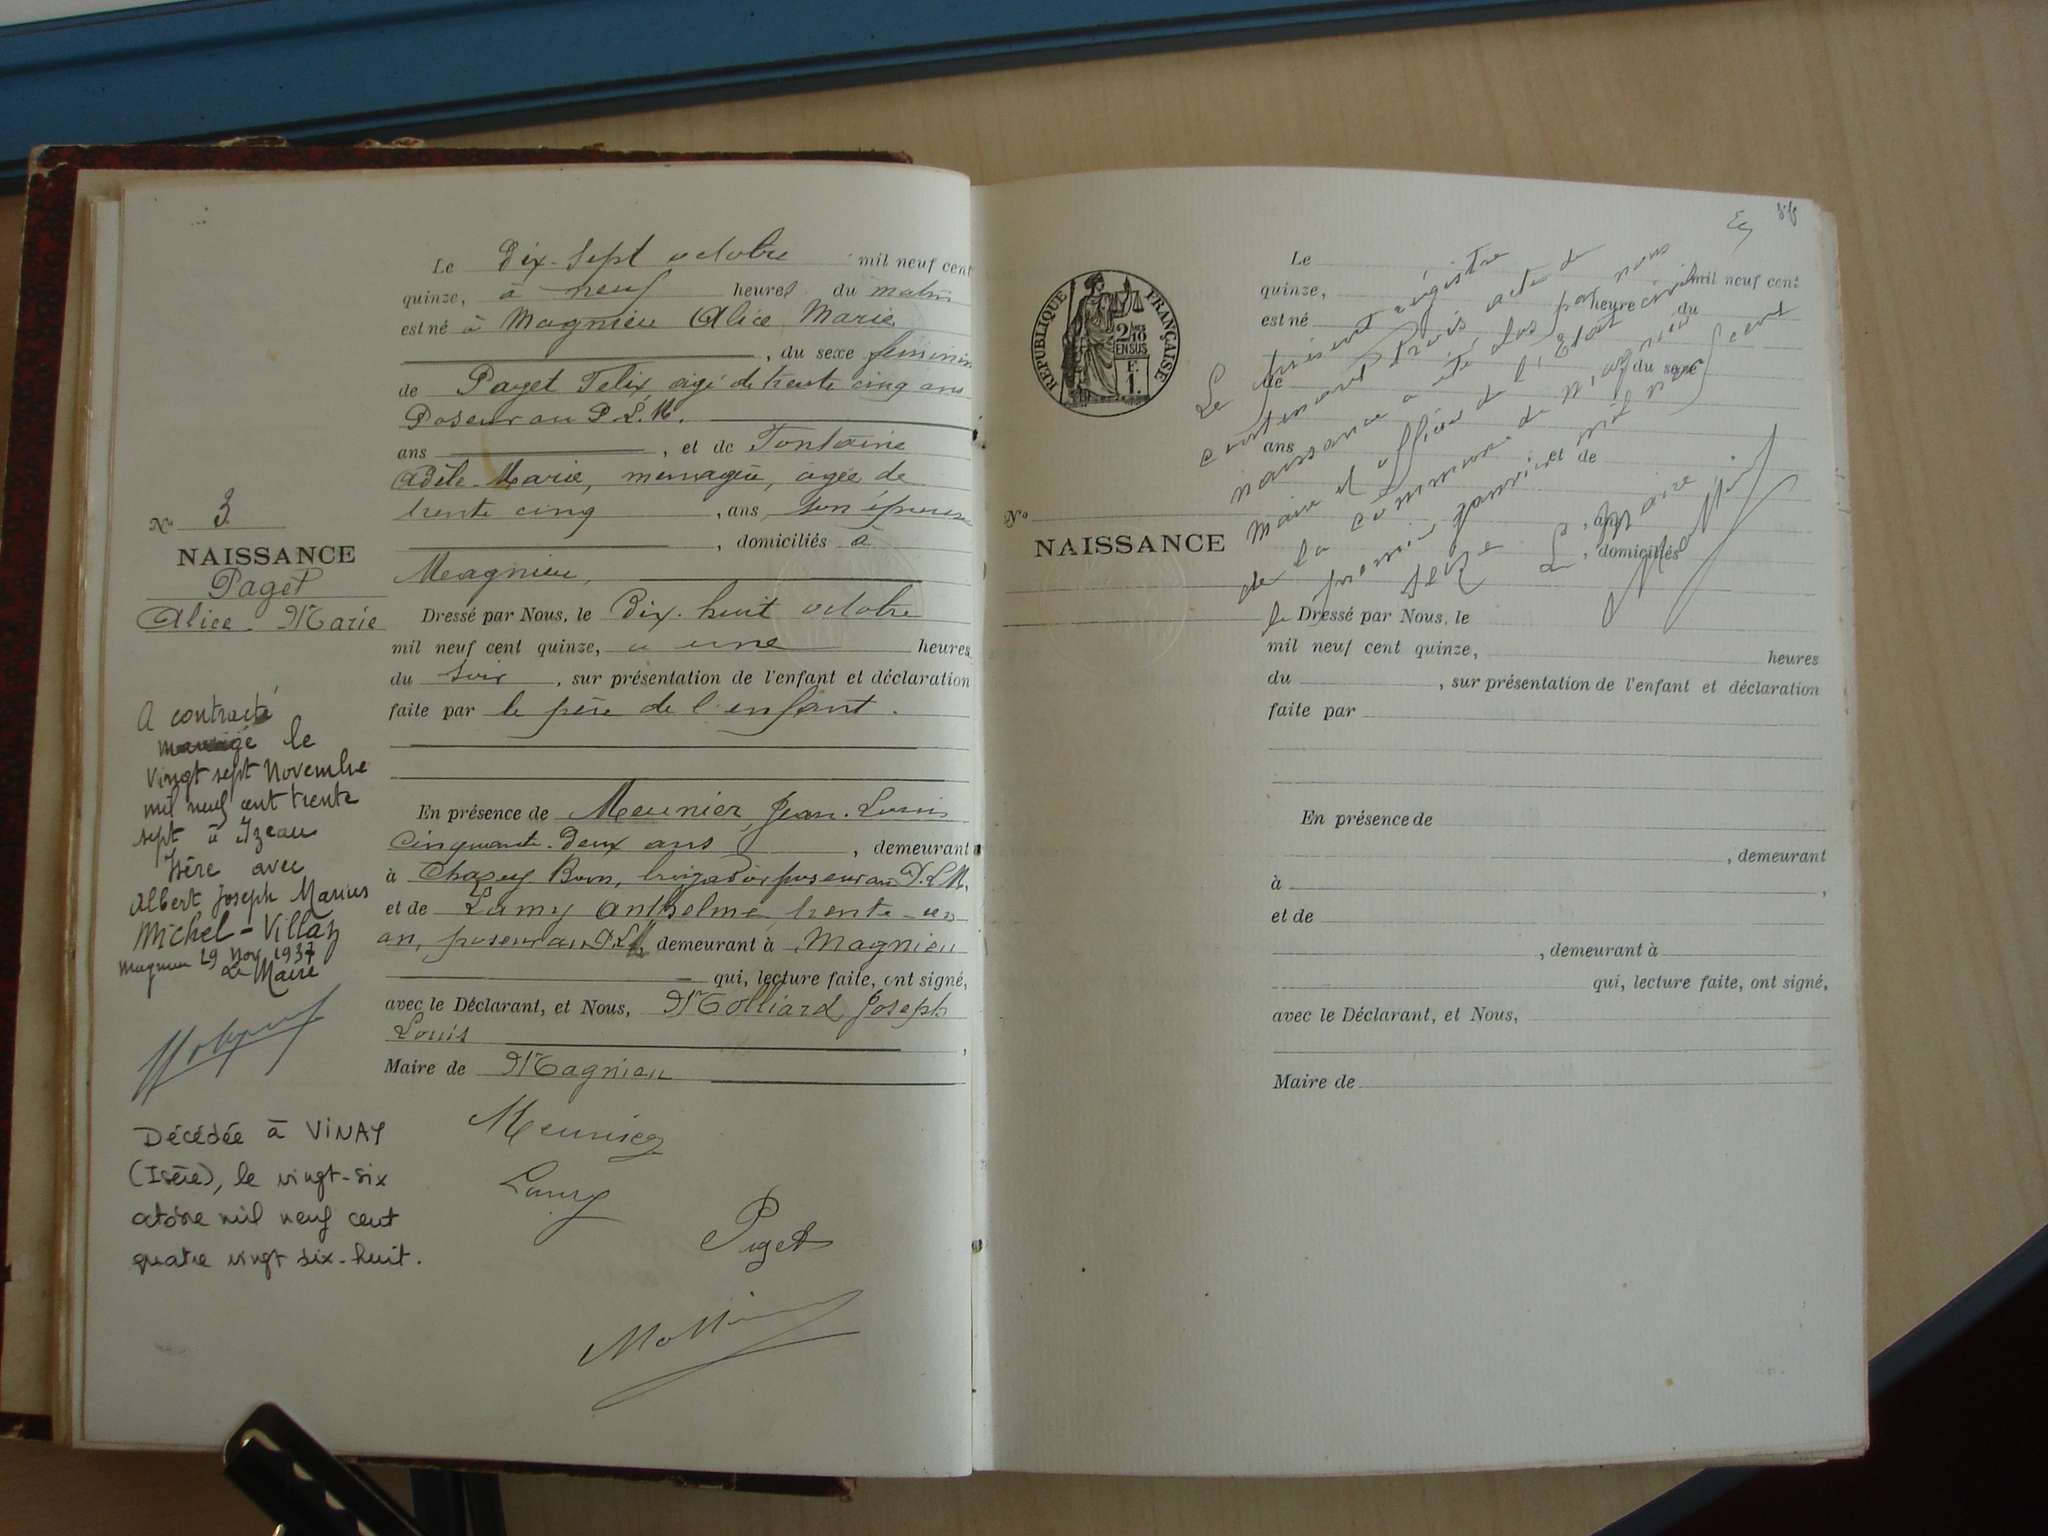 Nº 3
NAISSANCE
Paget
Alice-Marie
A contracté
mariage le
vingt sept Novembre
mil neuf cent trente
sept à Izeau
Isère avec
Albert Joseph Marius
Michel-Villaz
Magnieu 29 Nov 1937
Le Maire
Décédée à VINAY
(Isère), le vingt-six
octobre mil neuf cent
quatre vingt six-huit.
Le Dix-Sept octobre mil neuf cent
quinze, à neuf heures du matin
est né à Magnieu Alice Marie
, du sexe féminin
de Paget Felix, agé de trente cinq ans
Poseur au P.L.M.
ans , et de Fontaine
Adèle-Marie, menagère, agée de
trente cinq , ans son épouse
, domiciliés à
Magnieu,
Dressé par Nous, le Dix-huit octobre
mil neuf cent quinze, a une heures
du soir , sur présentation de l'enfant et déclaration
faite par le père de l'enfant.
En présence de Meunier Jean-Louis
Cinquante-deux ans , demeurant
à Chazey Bons, brigadier poseur au P.L.M.
et de Lamy Anthelme, trente-un
an, poseur au P.L.M. demeurant à Magnieu
qui, lecture faite, ont signé,
avec le Déclarant, et Nous, Molliard Joseph
Louis ,
Maire de Magnieu
Meunier
Lamy
Paget
RÉPUBLIQUE FRANÇAISE
2/10
EN SUS
F.
1.
Nº
NAISSANCE
Le mil neuf cent
quinze, heure du
est né
du sexe
de
ans et de
, ans
, domiciliés
Dressé par Nous, le
mil neuf cent quinze, heures
du , sur présentation de l'enfant et déclaration
faite par
En présence de
, demeurant
à ,
et de
, demeurant à
qui, lecture faite, ont signé,
avec le Déclarant, et Nous,
Maire de
Le présent régistre
contenant trois actes de
naissance a été clos par nous
Maire et officier de l'Etat civil
de la commune de Magnieu
le premier janvier mil neuf cent
seize
Le Maire